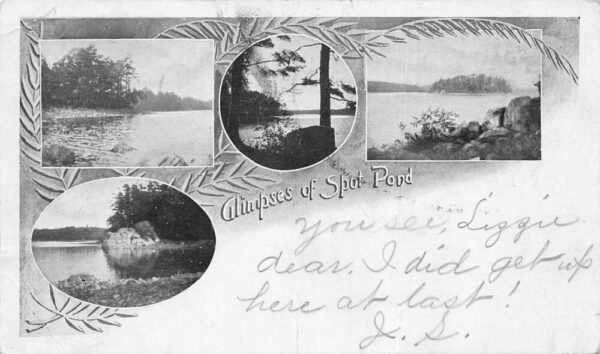 Glimpses of Spot Pond
You see, Lizzie
dear, I did get up
here at last!
J. S.